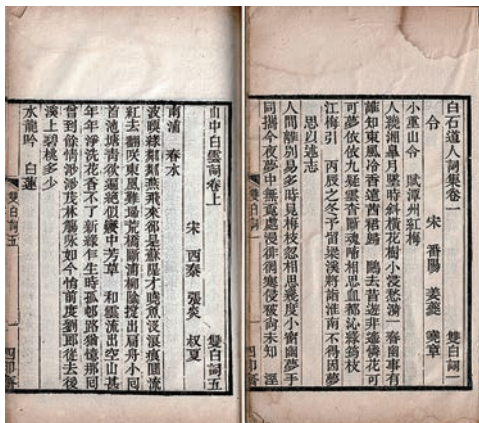 白石道人詞集卷一 雙白詞一
令 宋 番陽 姜夔 堯章
小重山令 賦潭州紅梅
人繞湘皋月墜時斜橫花樹小浸愁漪一春幽事有
誰知東風冷香遠茜裙歸 鷗去昔遊非遙憐花可
可夢依依九疑雲杳斷魂啼相思血都沁綠筠枝
江梅引 丙辰之冬予留梁溪將詣淮南不得因夢
思以述志
人間離別易多時見梅枝忽相思幾度小窗幽夢手
同攜今夜夢中無覓處漫徘徊寒侵被尚未知 溼
山中白雲詞卷上 雙白詞五
宋 西秦 張炎 叔夏
南浦 春水
波暖綠粼粼燕飛來卻是蘇隄才曉魚沒浪痕圓流
紅去翻笑東風難埽荒橋斷浦柳陰撐出扁舟小囘
首池塘青欲遍絕似夢中芳草 和雲流出空山甚
年年淨洗花香不了新綠乍生時孤邨路猶憶那囘
曾到餘情渺渺茂林觴詠如今悄前度劉郎從去後
溪上碧桃多少
水龍吟 白蓮
雙白詞五 一 四印齋